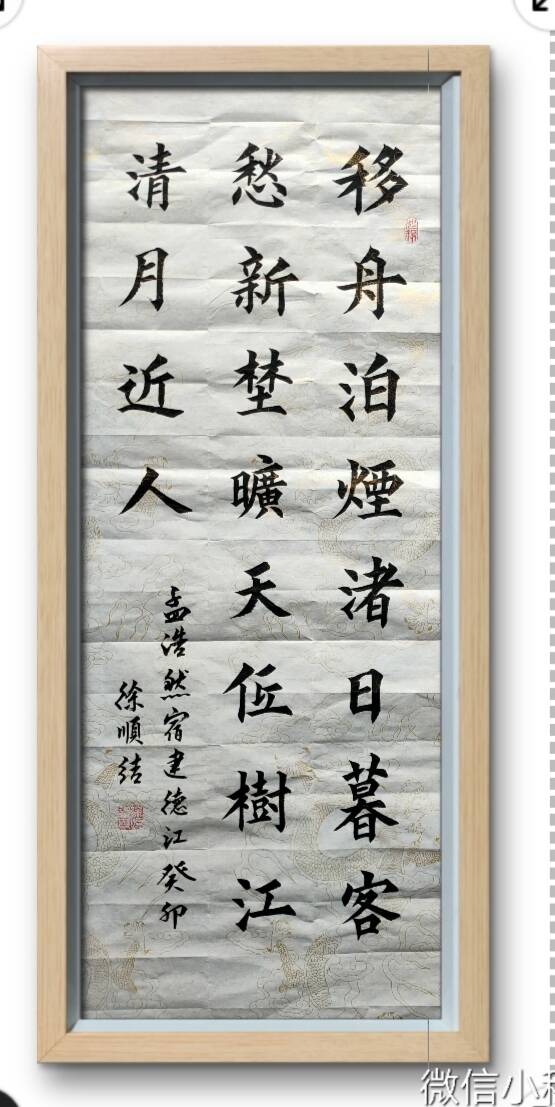 移舟泊煙渚日暮客
愁新埜曠天低樹江
清月近人
孟浩然宿建德江癸卯
徐順结
微信小